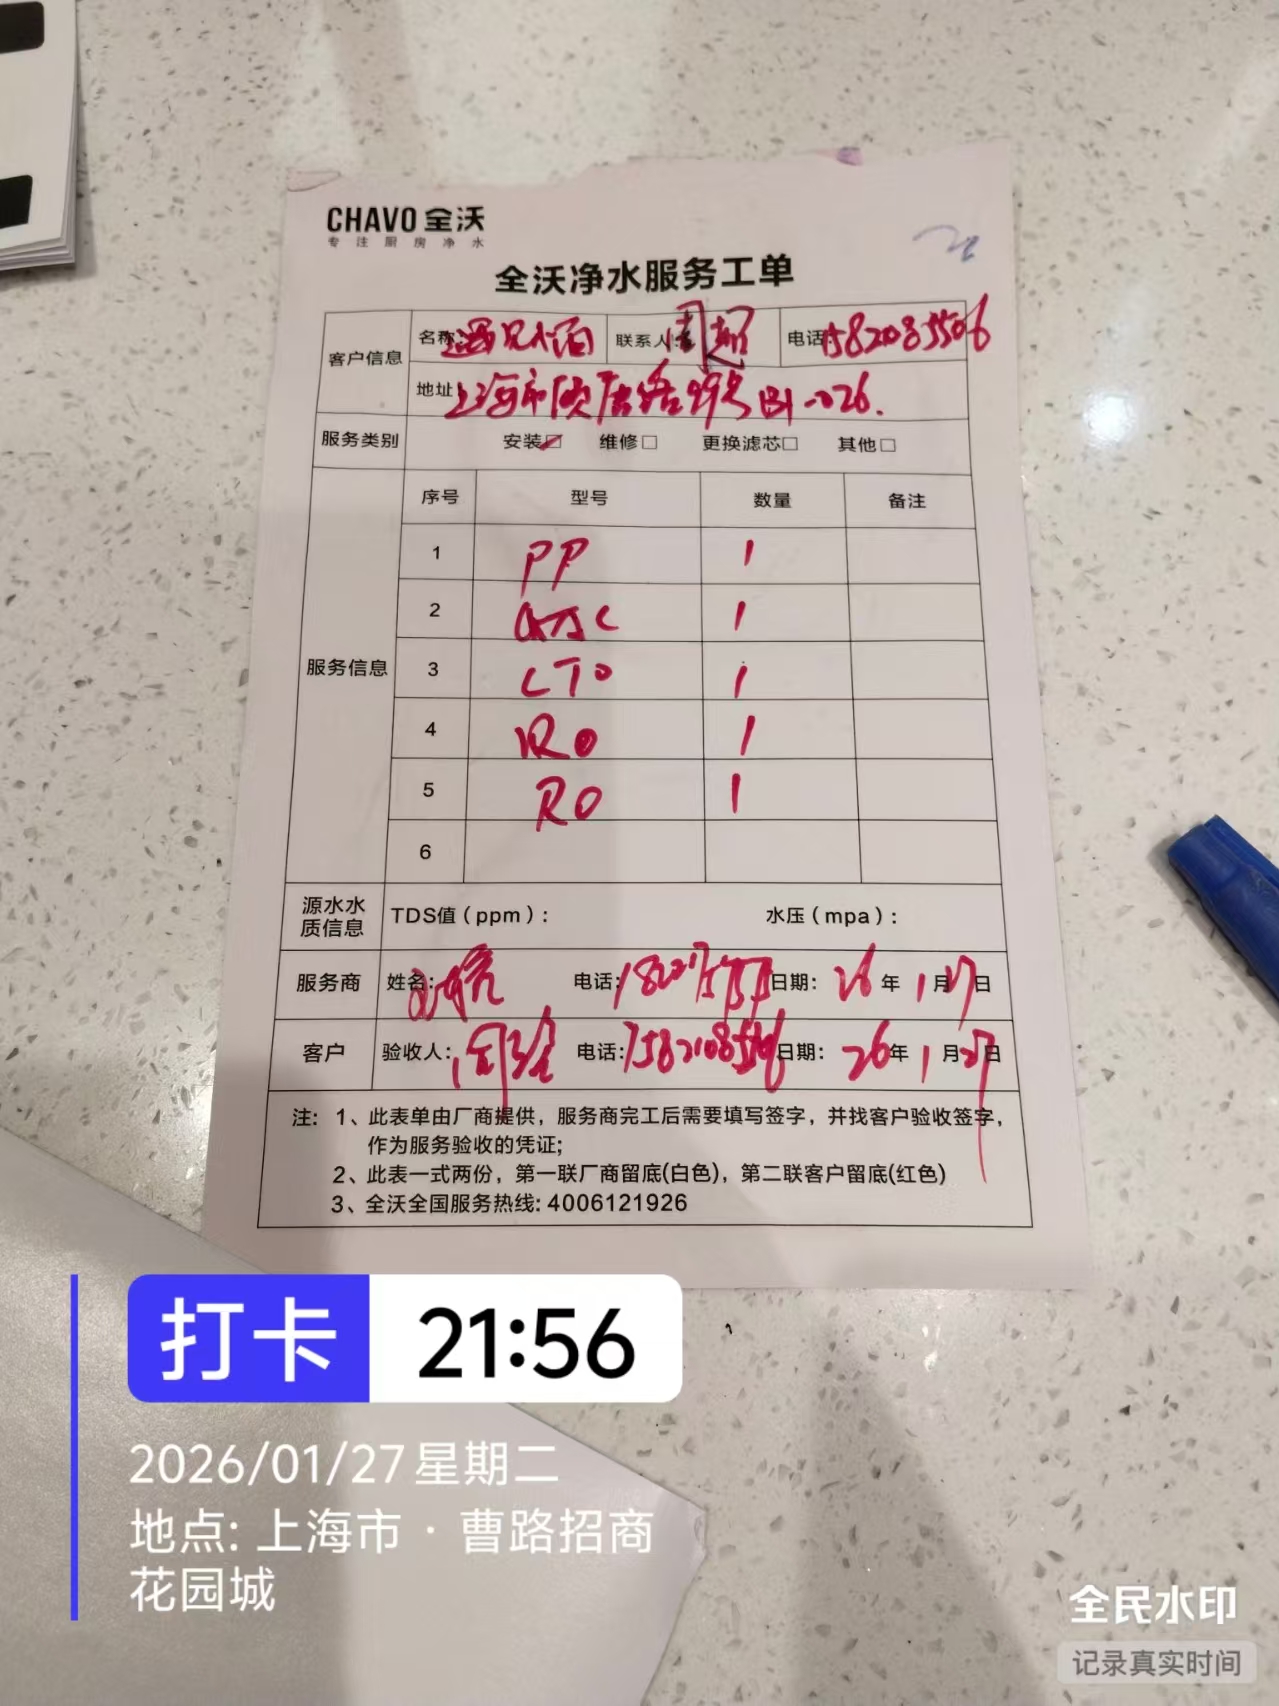 CHAVO 全沃
专注厨房净水
全沃净水服务工单
客户信息 名称: 遇见小面 联系人: 周超 电话: 15821085506
地址 上海市 路 99号 B1-026.
服务类别 安装☑ 维修□ 更换滤芯□ 其他□
服务信息 序号 型号 数量 备注
1 PP 1
2 1
3 CTO 1
4 RO 1
5 RO 1
6
源水水质信息 TDS值(ppm): 水压(mpa):
服务商 姓名: 电话: 日期: 26年1月27日
客户 验收人: 周超 电话: 日期: 26年1月27日
注: 1、此表单由厂商提供，服务商完工后需要填写签字，并找客户验收签字，
作为服务验收的凭证;
2、此表一式两份，第一联厂商留底(白色)，第二联客户留底(红色)
3、全沃全国服务热线: 4006121926
打卡 21:56
2026/01/27 星期二
地点: 上海市 · 曹路招商
花园城
全民水印
记录真实时间